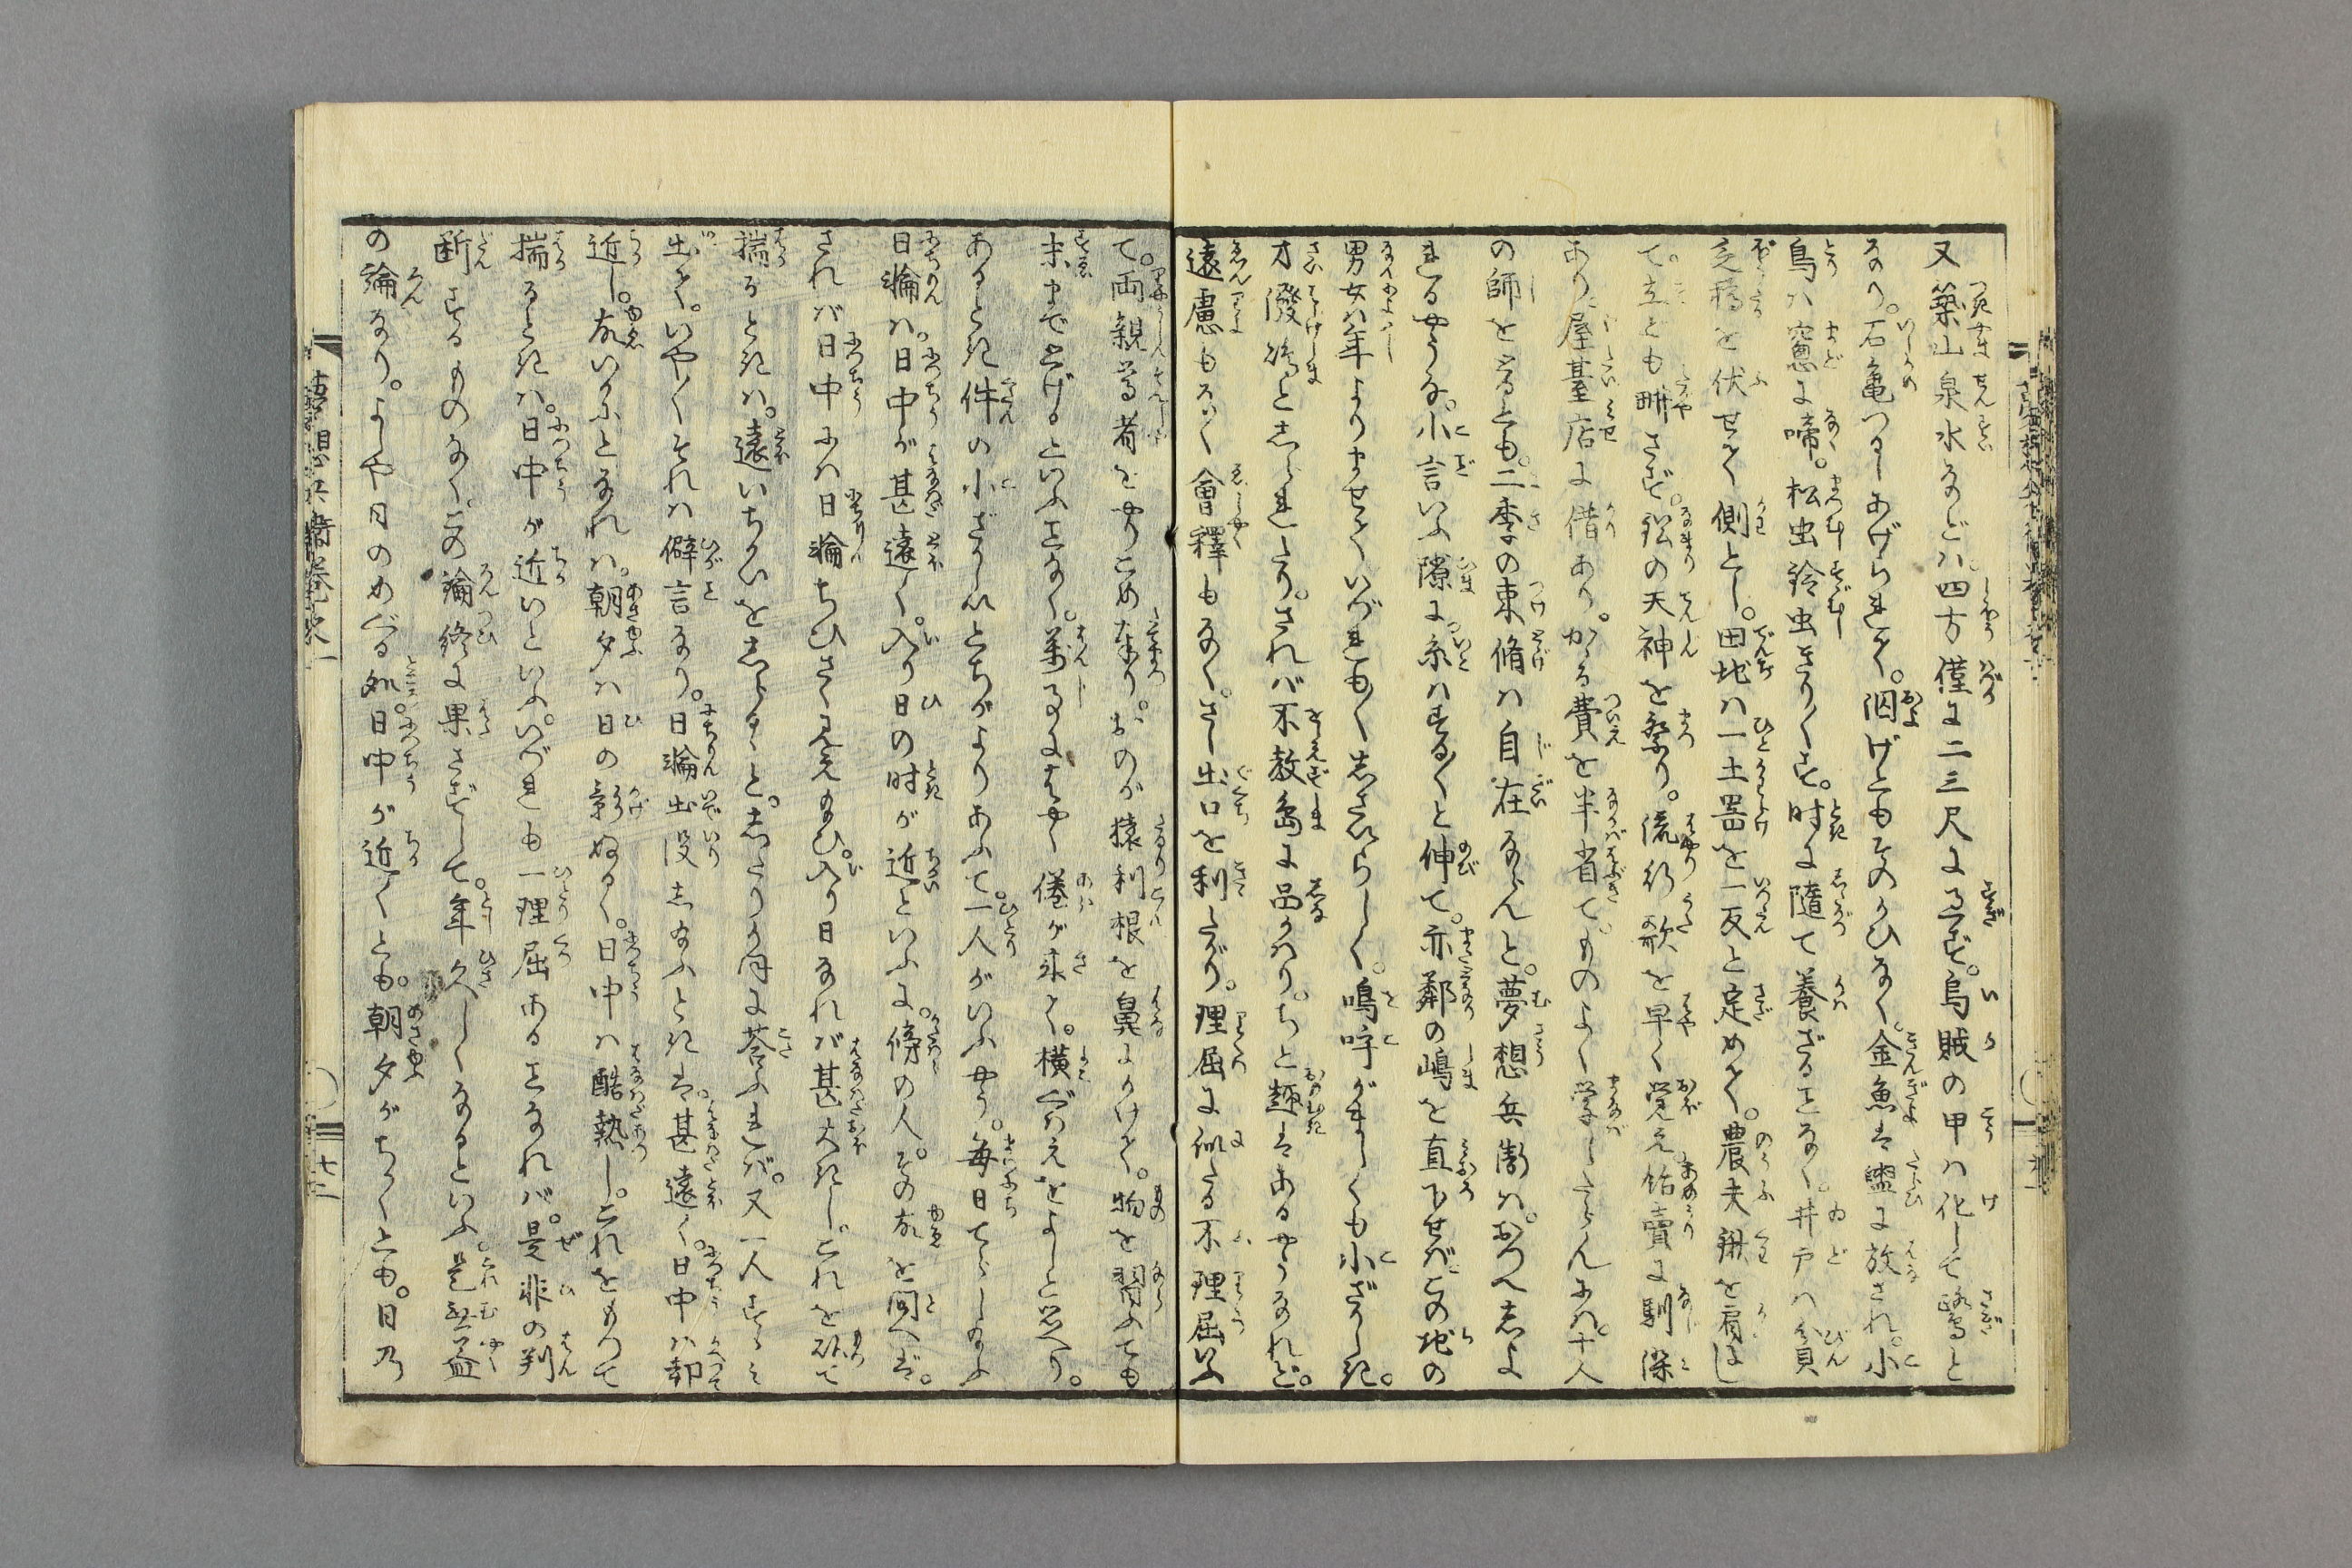 又築山泉水などハ四方僅に二三尺に過ず。烏賊の甲ハ化して鷺と
なり。石亀つるしあげられて。泅げともそのかひなく。金魚ハ盥に放され。小
鳥ハ窓に啼。松虫鈴虫きり〳〵す。時に随て養ざることなく。井戸ハ貧
乏樽を伏せて側とし。田地ハ一土器を一反と定めて。農夫鍬を肩にし
て立ども耕さず。鉛の天神を祭り。流行歌を早く覚え。飴賣に馴深
あり。屋臺店に借あり。かゝる費を半省て。ものよく学したらんにハ。十人
の師をとるとも。二季の束脩ハ自在ならんと。夢想兵衛ハ。おつへしよ
れるやうな。小言いふ隙に。糸ハする〳〵と伸て。亦鄰の嶋を直下せバ。この地の
男女ハ年よりませて。いづれも〳〵さいらしく。嗚呼がましくも小ざかしき。
才溌嶋としられたり。されバ不教島に品かハり。ちと趣ハあるやうなれど。
遠慮もなく會釋もなく。さし出口を利たがり。理屈に似たる不理屈いふ
て。両親尊者をやりこめたり。おのが猿利根を鼻にかけて。物を習ふても
末まで上げるといふことなく。萬事にはやく倦が来て。横ぐハえをよしと思へり。
あるとき件の小ざかしいとちがよりあふて。一人がいふやう。毎日てらし給ふ
日輪ハ。日中が甚遠く。入り日の時が近いといふに。傍の人。その故を問へバ。
されバ日中にハ日輪ちひさく見え給ひ。入り日なれバ甚大きし。これを以て
揣るときハ。遠いちかいをしらるゝと。したりかほに荅ふれバ。又一人すゝみ
出て。いや〳〵それハ僻言なり。日輪出没し給ふときハ。甚遠く。日中ハ却
近し。故いかにとなれハ。朝夕ハ日の影ぬるく。日中ハ酷熱し。これをもつて
揣るときハ。日中が近いといふ。いづれも一理屈あることなれバ。是非の判
断するものなく。この論終に果さずして。年久しくなるといふ。是無益
の論なり。よしや日のめぐる処。日中が近くとも。朝夕がちかくとも。日乃
夢想兵衛巻之一
十二